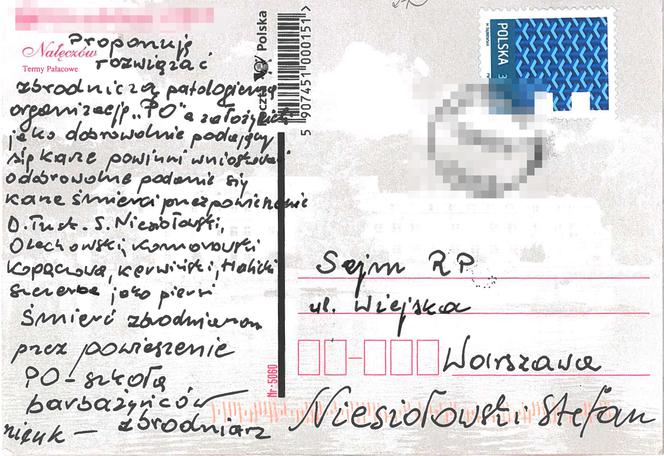 Proponuję
rozwiązać
zbrodniczą patologiczną
organizację "PO" a założyciele
jako dobrowolnie podający
się karze powinni wnioskować
o dobrowolne podanie się
karze śmierci przez powieszenie
D. Tusk. S. Niesiołowski,
Olechowski, Komorowski
Kopaczowa, Kerwiński, Halicki
Szczerba jako pierwsi
Śmierć zbrodniarzom
przez powieszenie
PO-szkołą
barbażyńców
zbrodniarz
Nałęczów
Termy Pałacowe
Polska
5 907451 000151 >
Nr. 5060
POLSKA
Sejm RP.
ul. Wiejska
Warszawa
Niesiołowski Stefan